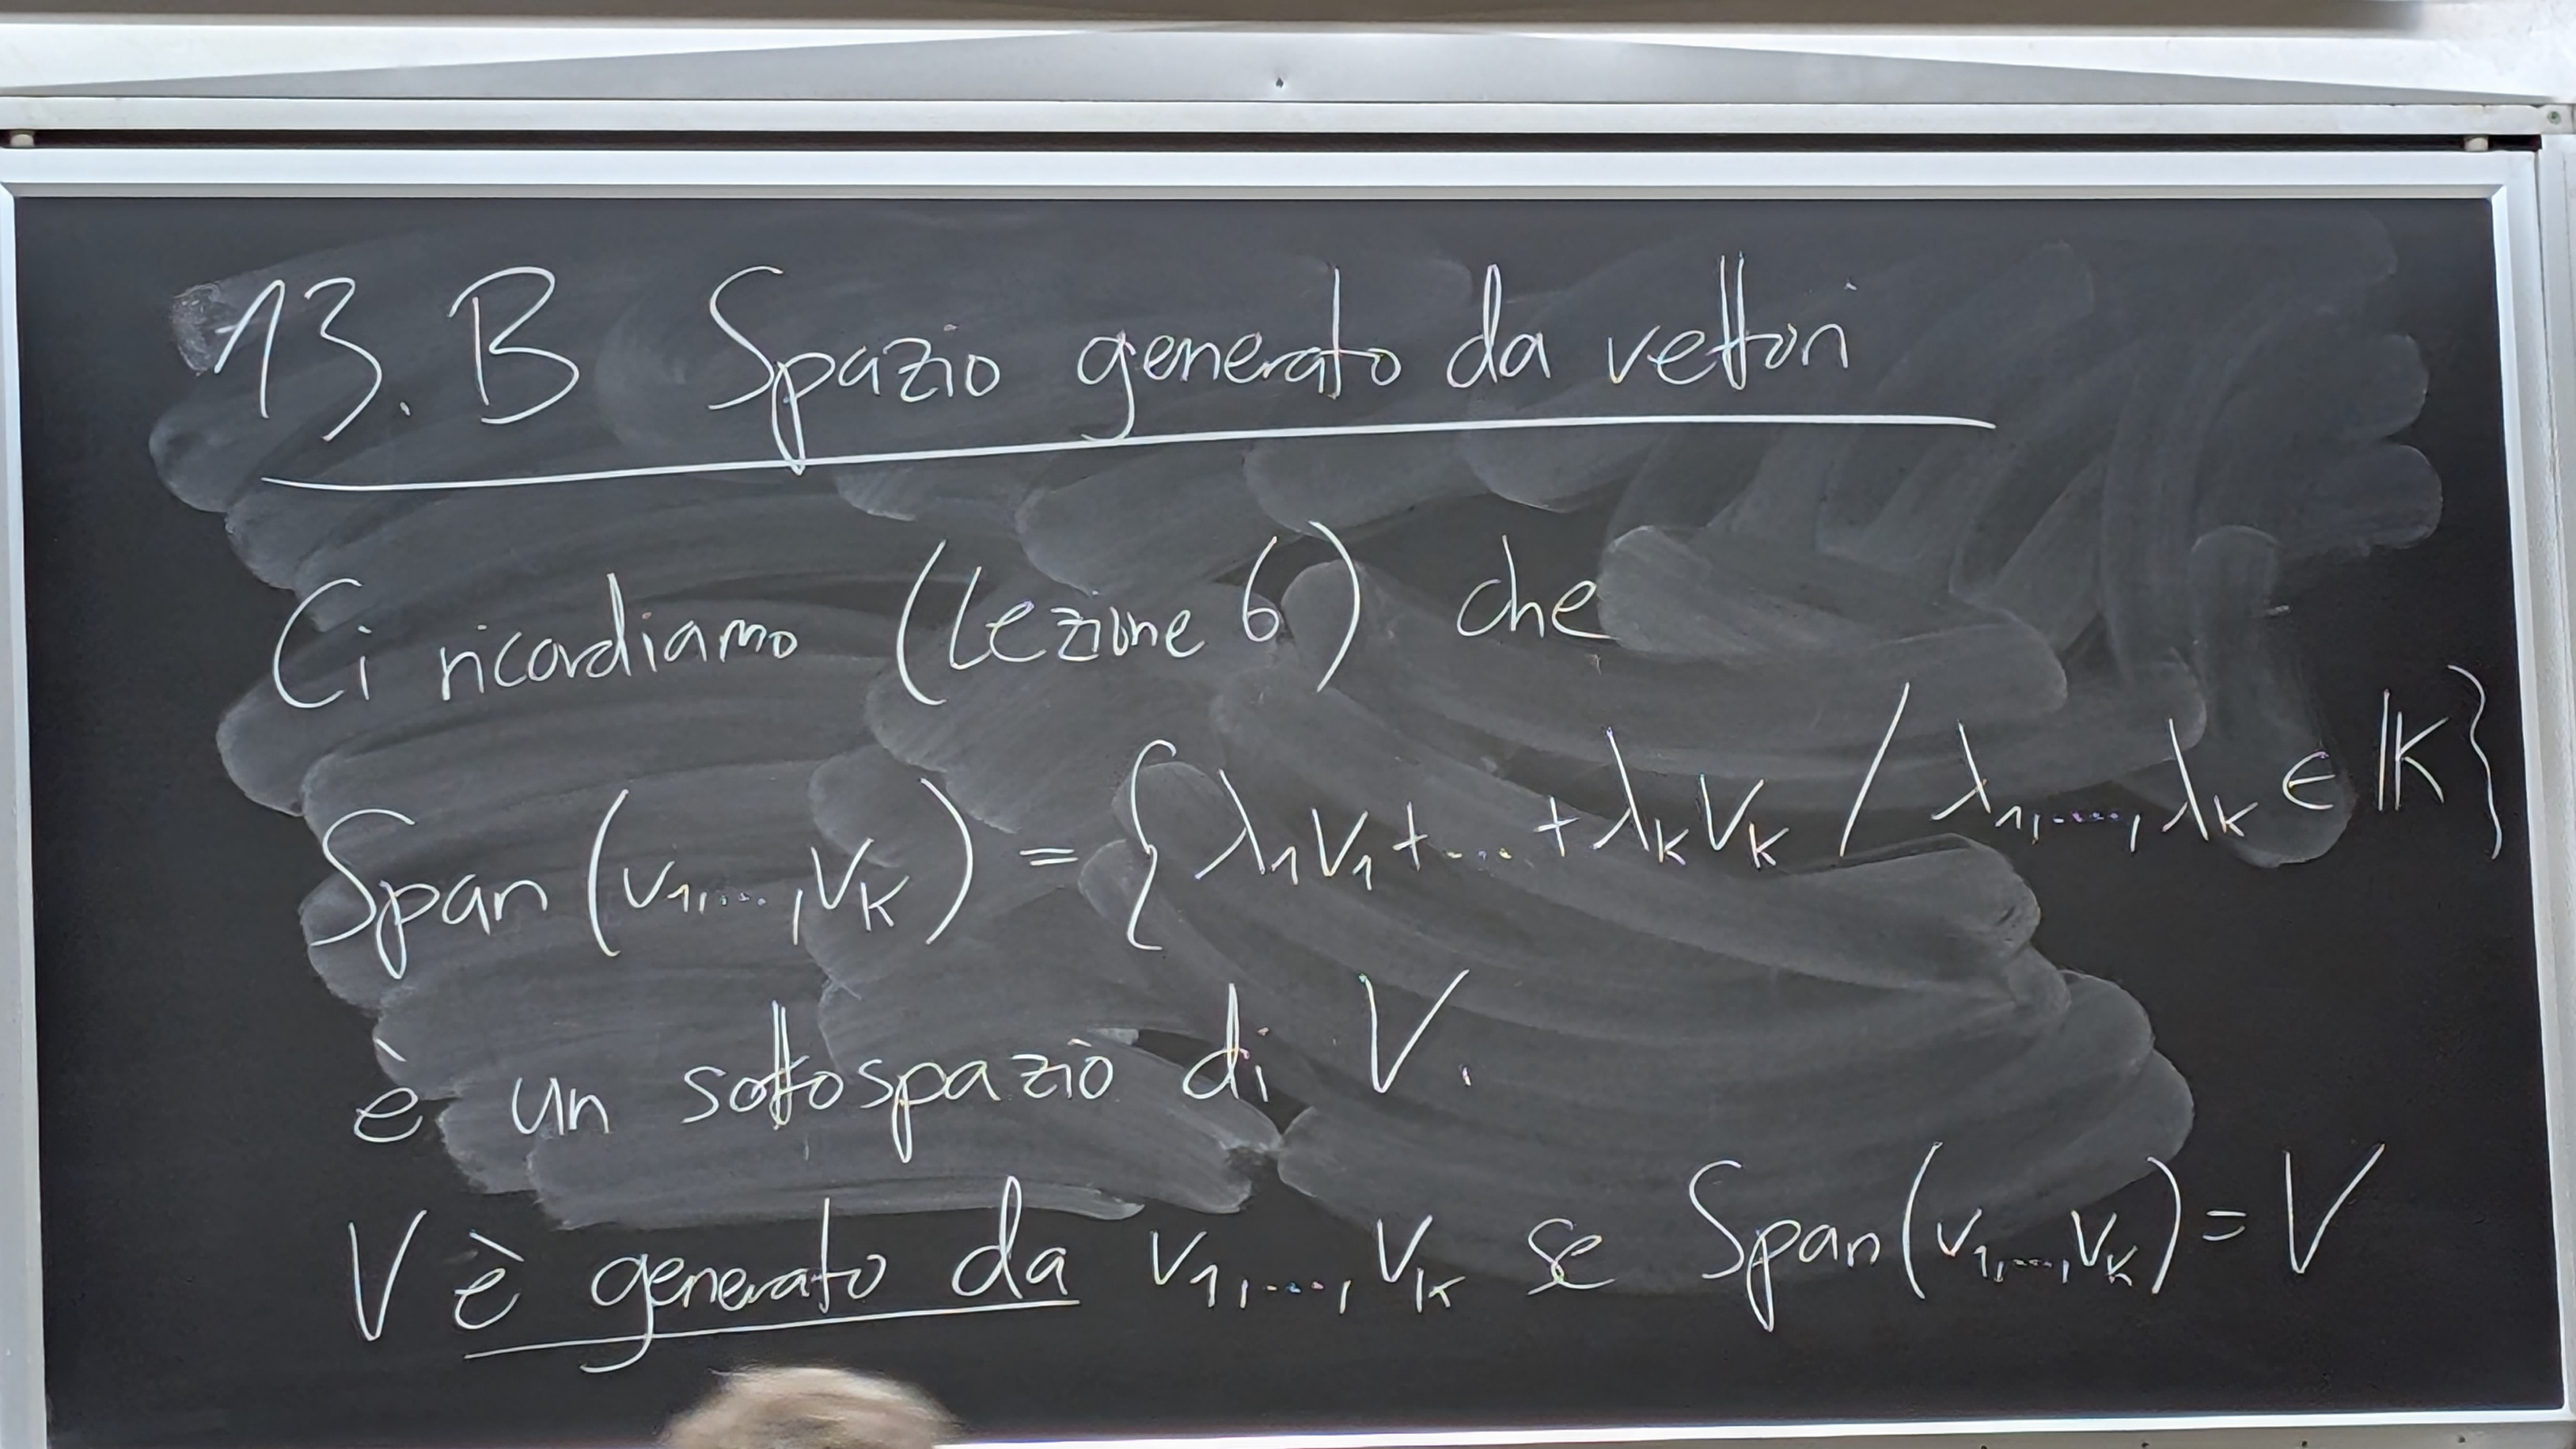 13. B Spazio generato da vettori
Ci ricordiamo (Lezione 6) che
Span (v₁,...,vₖ) = { λ₁v₁ + ... + λₖvₖ / λ₁,....,λₖ ∈ 𝕂 }
è un sottospazio di V.
V è generato da v₁,...,vₖ se Span(v₁,...,vₖ) = V